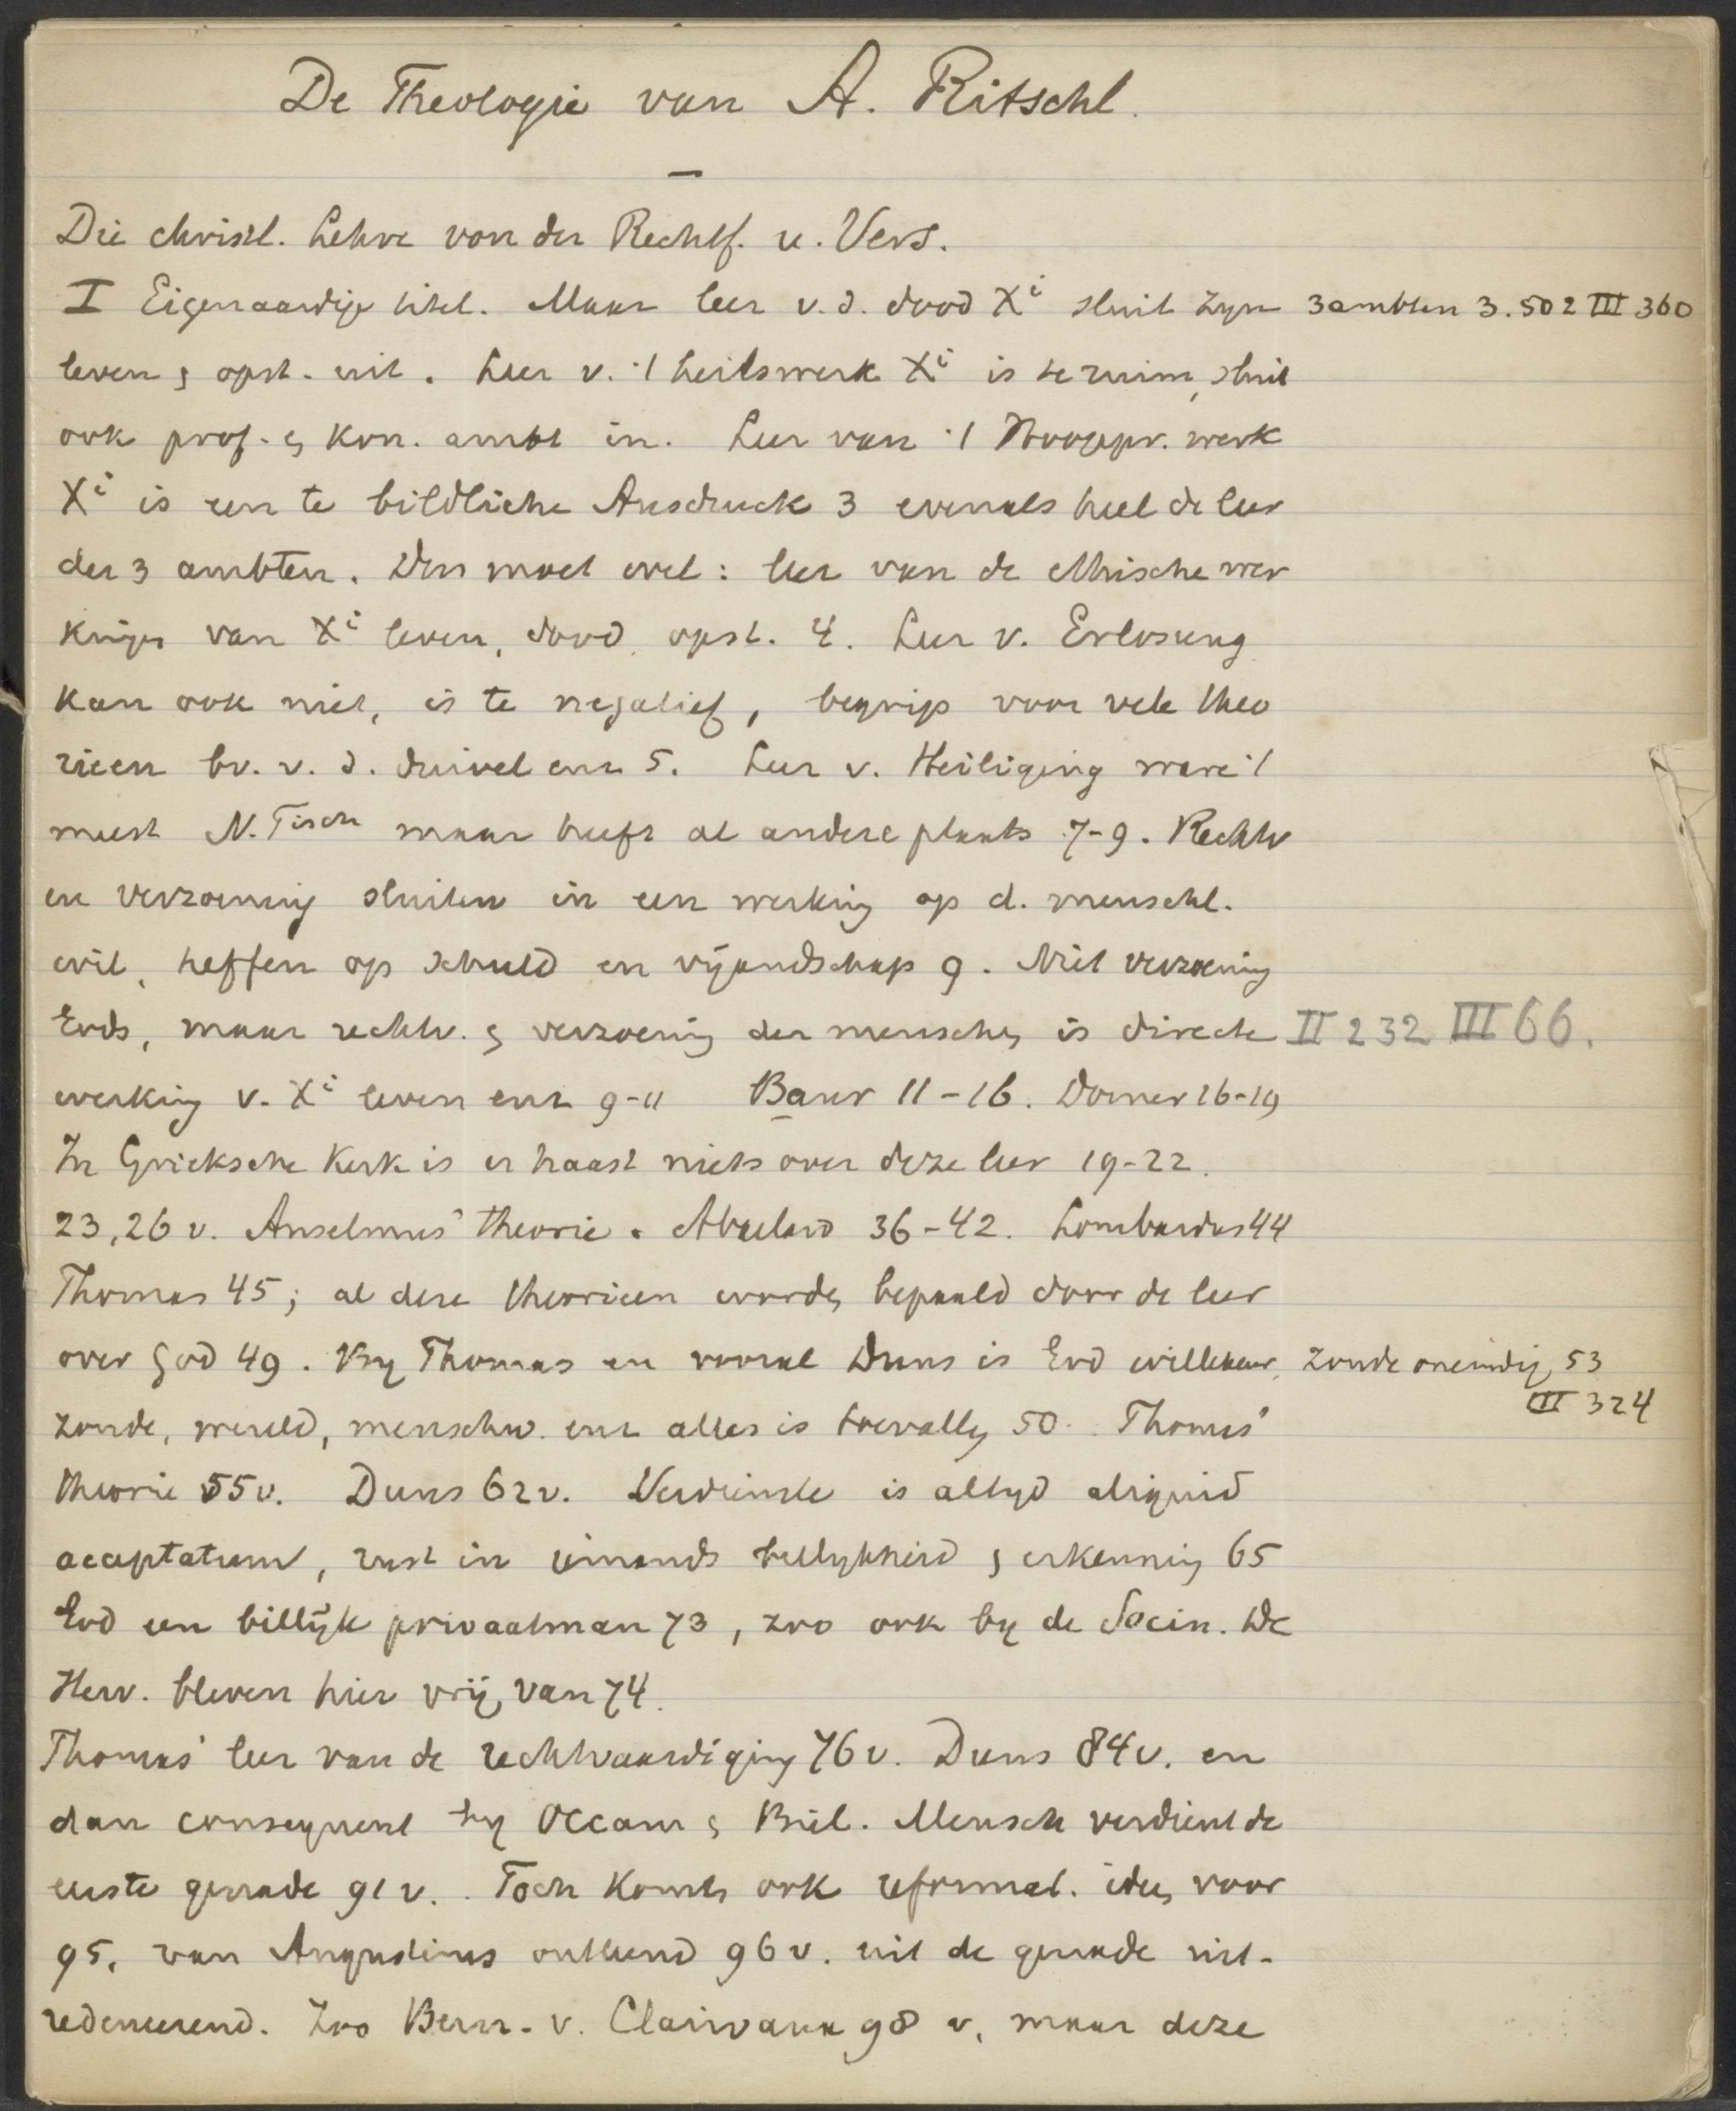 De Theologie van A. Ritschl.
—
Die christl. Lehre von der Rechtf. u. Vers.
I Eigenaardige titel. Maar leer v. d. dood Xi sluit zyn 3 ambten 3. 502 III 360
leven & opst. uit. Leer v. 't heilswerk Xi is te ruim, sluit
ook prof. & kon. ambt in. Leer van 't Hoogepr. werk
Xi is een te bildliche Ausdruck 3 evenals heel de leer
der 3 ambten. Dus moet evel: leer van de ethische wer
kingen van Xi leven, dood, opst. 4. Leer v. Erlosung
kan ook niet, is te negatief, begrip voor vele theo
rieen bv. v. d. duivel enz 5. Leer v. Heiliging ware 't
meest N. Tisch maar heeft al andere plaats 7-9. Rechtv
en verzoening sluiten in een werking op d. menschl.
wil, heffen op schuld en vijandschap 9. Niet verzoening
Gods, maar rechtv. & verzoening der menschen is directe II 232 III 66.
werking v. Xi leven enz 9-11 Baur 11-16. Dorner 16-19
In Grieksche Kerk is er haast niets over deze leer 19-22.
23, 26 v. Anselmus' theorie. Abaelard 36-42. Lombardus 44
Thomas 45; al deze theorieen worden bepaald door de leer
over God 49. By Thomas en vooral Duns is God willekeur, zonde oneindig 53
III 324
zonde, wereld, menschw. enz alles is toevallig 50. Thomas'
theorie 55 v. Duns 62 v. Verdienste is altyd aliquid
acceptatum, rust in iemands billykheid & erkenning 65
God een billijk privaatman 73, zoo ook by de Socin. De
Herv. bleven hier vrij van 74.
Thomas' leer van de rechtvaardiging 76 v. Duns 84 v. en
dan consequent by Occam & Biel. Mensch verdient de
eerste genade 91 v. Toch komen ook reformat. ideen voor
95, van Augustinus ontleend 96 v. uit de genade uit-
redeneerend. Zoo Bern. v. Clairvaux 98 v, maar deze